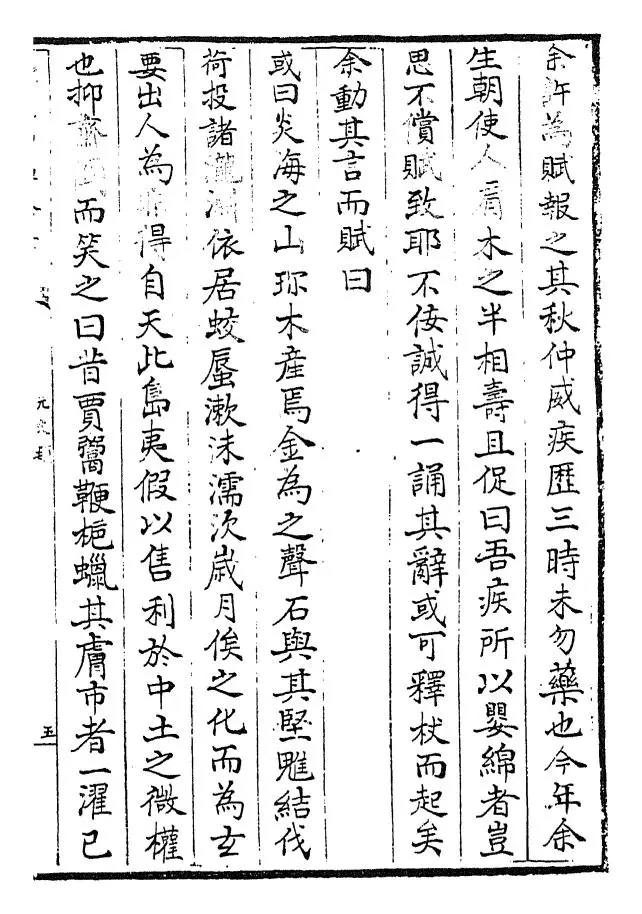 余許為賦報之其秋仲威疾歷三時未勿藥也今年余
生朝使人 木之半相壽且促曰吾疾所以嬰綿者豈
思不償賦致耶不佞誠得一誦其辭或可釋杖而起矣
余動其言而賦曰
或曰炎海之山珎木產焉金為之聲石與其堅雖結伐
荷投諸瀧 依居蛟蜃漱沫濡次歲月俟之化而為玄
要出人為 得自天此島夷假以售利於中土之微權
也抑 而笑之曰昔賈鬻鞭梔蠟其膚市者一濯已
五